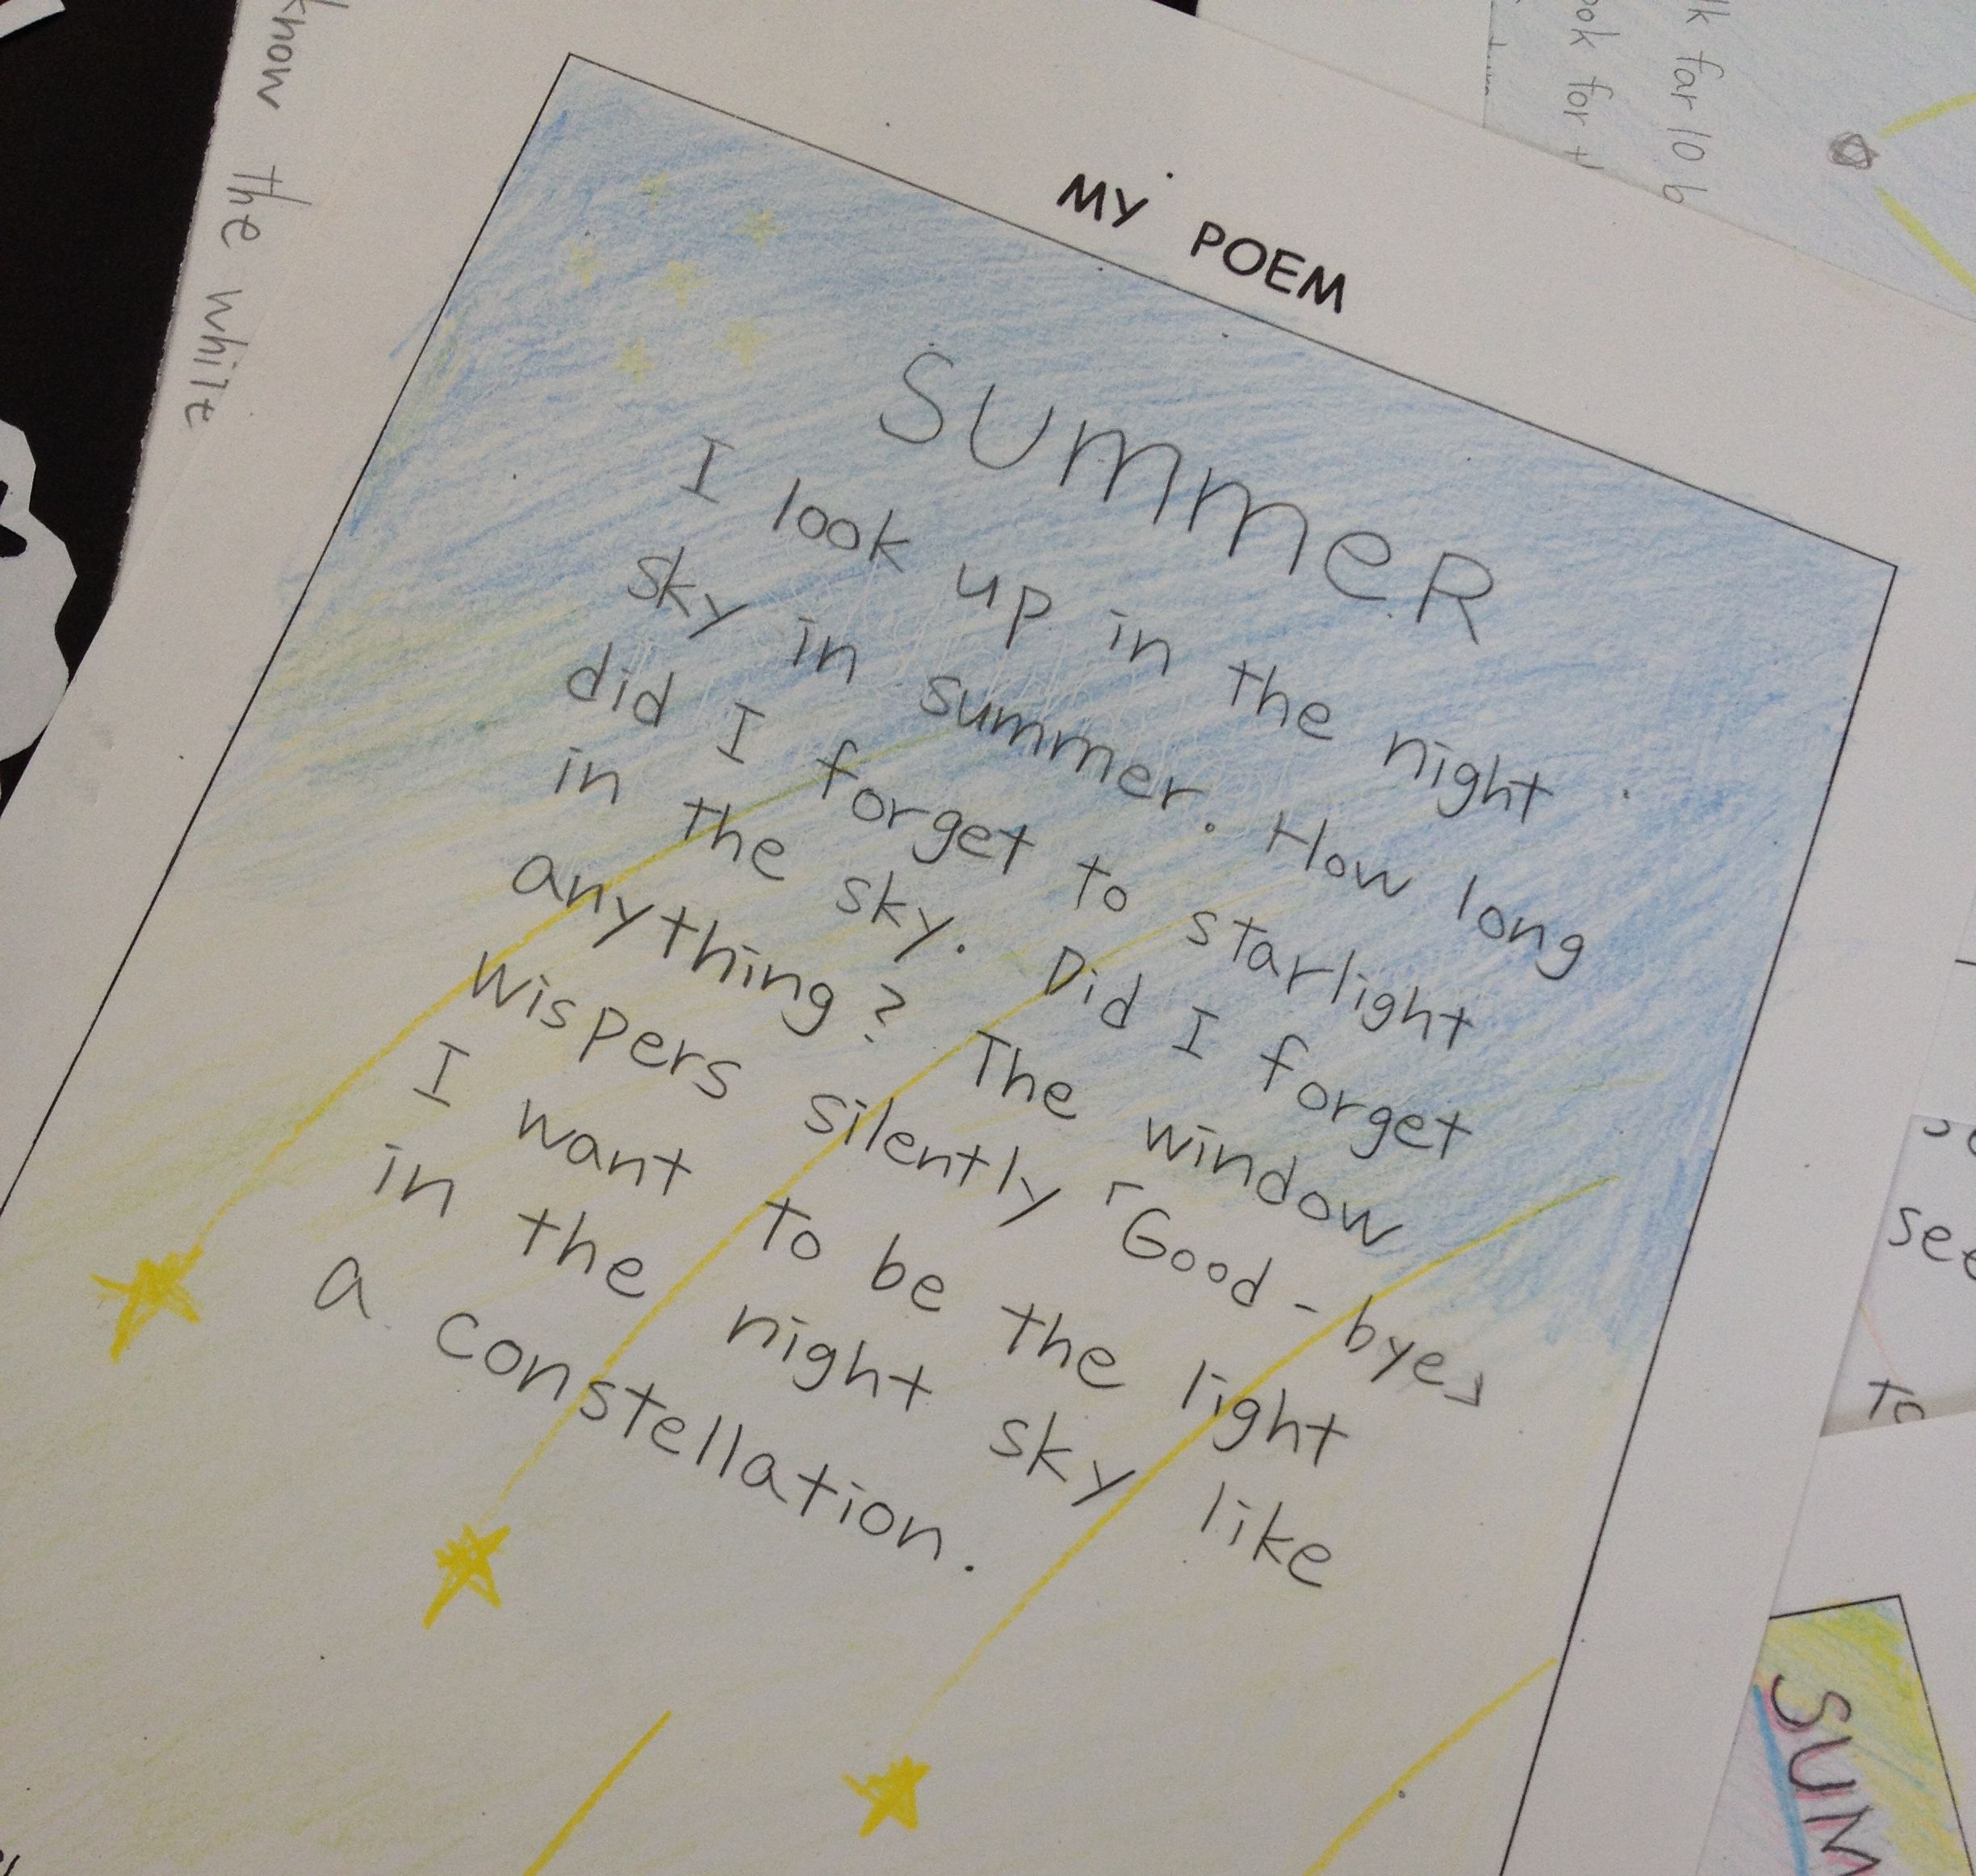 MY POEM
SUMMER
I look up in the night
sky in summer. How long
did I forget to starlight
in the sky. Did I forget
anything? The window
wispers silently「Good-bye」
I want to be the light
in the night sky like
a constellation.
know the white
for 10
for
see
to
SUM